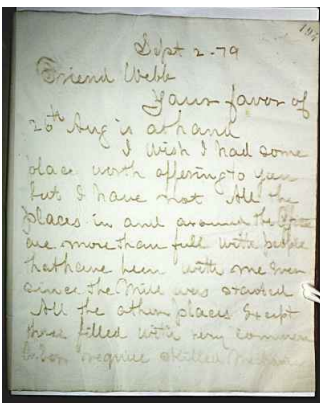 Sept 2-79
Friend Webb
Your favor of
26th Aug is at hand
I wish I had some
place worth offering to you
but I have not All the
places in and around the
are more than full with people
that have been with me Ever
since the Mill was started
All the other places Except
those filled with very common
labor require skilled